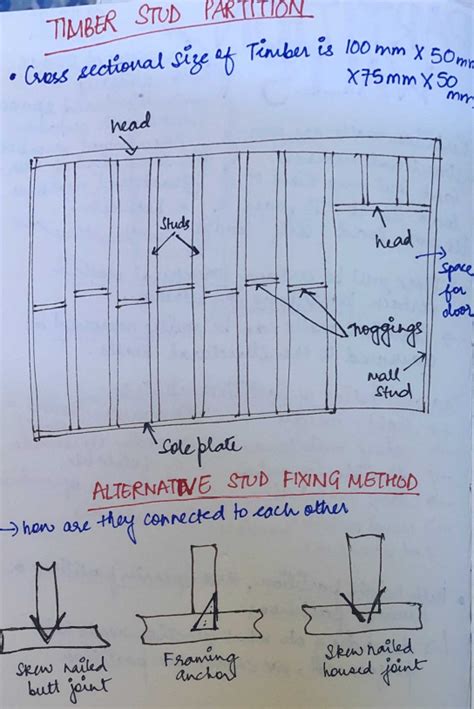 TIMBER STUD PARTITION
• Cross sectional size of Timber is 100mm X 50mm
X 75mm X 50
mm
head
Studs
head
Space
for
door
noggings
wall
stud
Sole plate
ALTERNATIVE STUD FIXING METHOD
→ how are they connected to each other
Skew nailed
butt joint
Framing
anchor
Skew nailed
housed joint